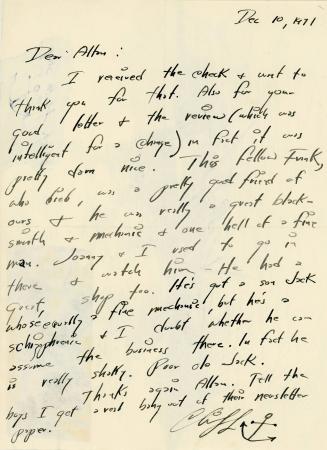 Dec 10, 1971
Dear Alton:
I received the check & want to
thank you for that. Also for your
good letter & the review (which was
intelligent for a change) in fact it was
pretty darn nice. This fellow Funk,
who died, was a pretty good friend of
ours & he was really a great black-
smith & mechanic & one hell of a fine
man. Joanny & I used to go in
there & watch him – He had a
Great shop too. He's got a son Jack
whose equally a fine mechanic but he's a
schizophrenic & I doubt whether he can
assume the business there. In fact he
is really shotty. Poor ole Jack.
Thanks again Alton. Tell the
boys I get a real bang out of their newsletter
paper.
Cliff